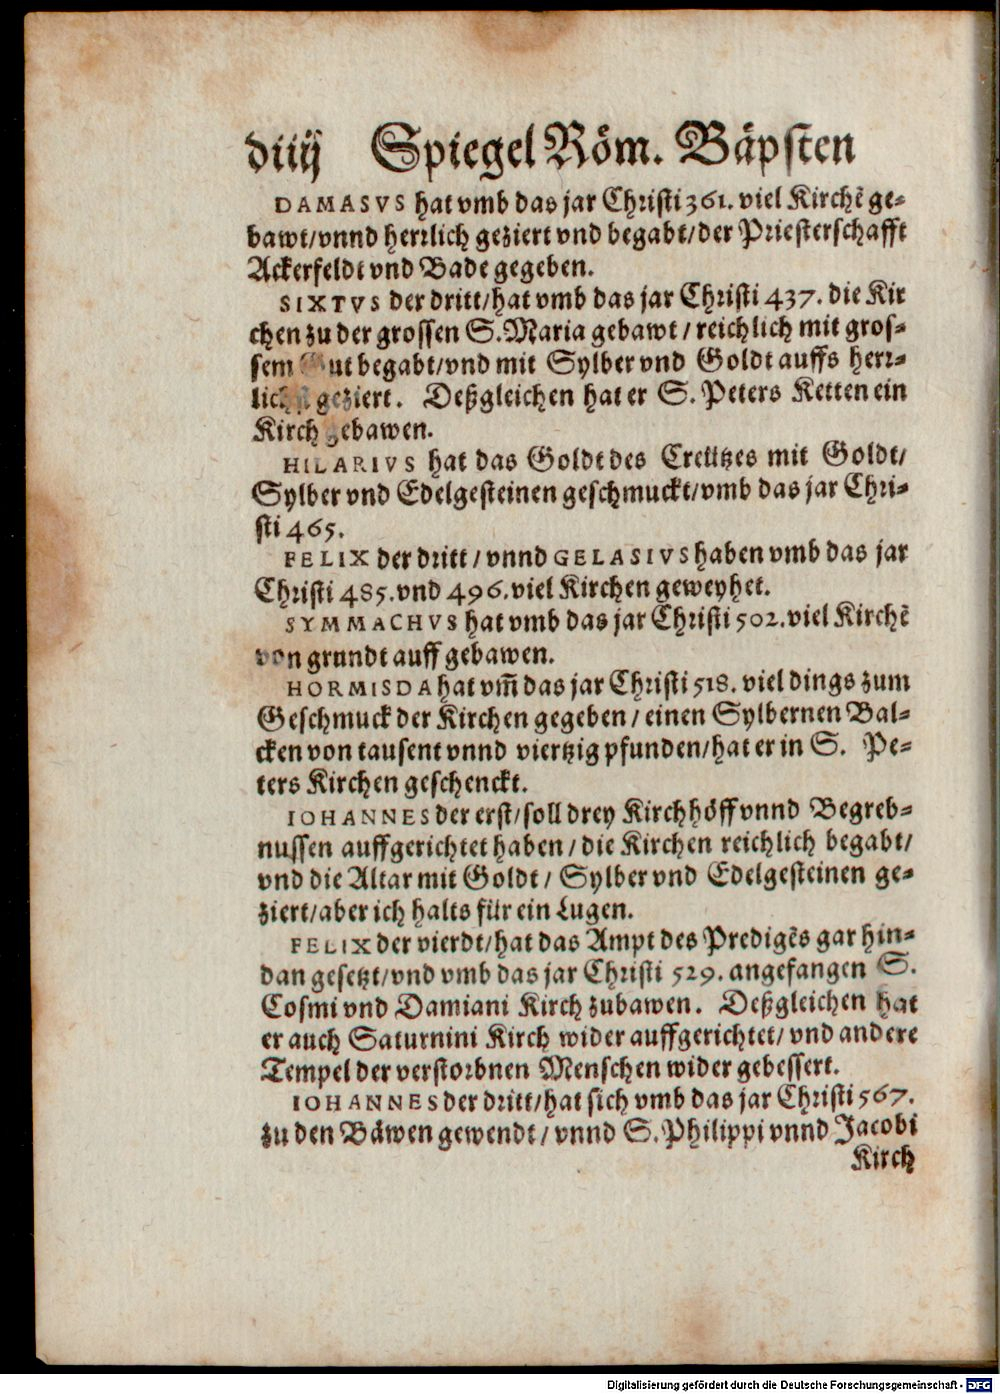 diiij Spiegel Röm. Bäpsten
DAMASVS hat vmb das jar Christi 361. viel Kirchẽ ge-
bawt/vnnd herrlich geziert vnd begabt/der Priesterschafft
Ackerfeldt vnd Bade gegeben.
SIXTVS der dritt/hat vmb das jar Christi 437. die Kir
chen zu der grossen S. Maria gebawt / reichlich mit gros-
sem Gut begabt/vnd mit Sylber vnd Goldt auffs herr-
lichst geziert. Deßgleichen hat er S. Peters Ketten ein
Kirch gebawen.
HILARIVS hat das Goldt des Creützes mit Goldt/
Sylber vnd Edelgesteinen geschmuckt/vmb das jar Chri-
sti 465.
FELIX der dritt / vnnd GELASIVS haben vmb das jar
Christi 485. vnd 496. viel Kirchen geweyhet.
SYMMACHVS hat vmb das jar Christi 502. viel Kirchẽ
von grundt auff gebawen.
HORMISDA hat vm̃ das jar Christi 518. viel dings zum
Geschmuck der Kirchen gegeben / einen Sylbernen Bal-
cken von tausent vnnd viertzig pfunden/hat er in S. Pe-
ters Kirchen geschenckt.
IOHANNES der erst/soll drey Kirchhöff vnnd Begreb-
nussen auffgerichtet haben / die Kirchen reichlich begabt/
vnd die Altar mit Goldt / Sylber vnd Edelgesteinen ge-
ziert/aber ich halts für ein Lugen.
FELIX der vierdt/hat das Ampt des Predigẽs gar hin-
dan gesetzt/vnd vmb das jar Christi 529. angefangen S.
Cosmi vnd Damiani Kirch zubawen. Deßgleichen hat
er auch Saturnini Kirch wider auffgerichtet/ vnd andere
Tempel der verstorbnen Menschen wider gebessert.
IOHANNES der dritt/hat sich vmb das jar Christi 567.
zu den Bäwen gewendt / vnnd S. Philippi vnnd Jacobi
Kirch
Digitalisierung gefördert durch die Deutsche Forschungsgemeinschaft - DFG